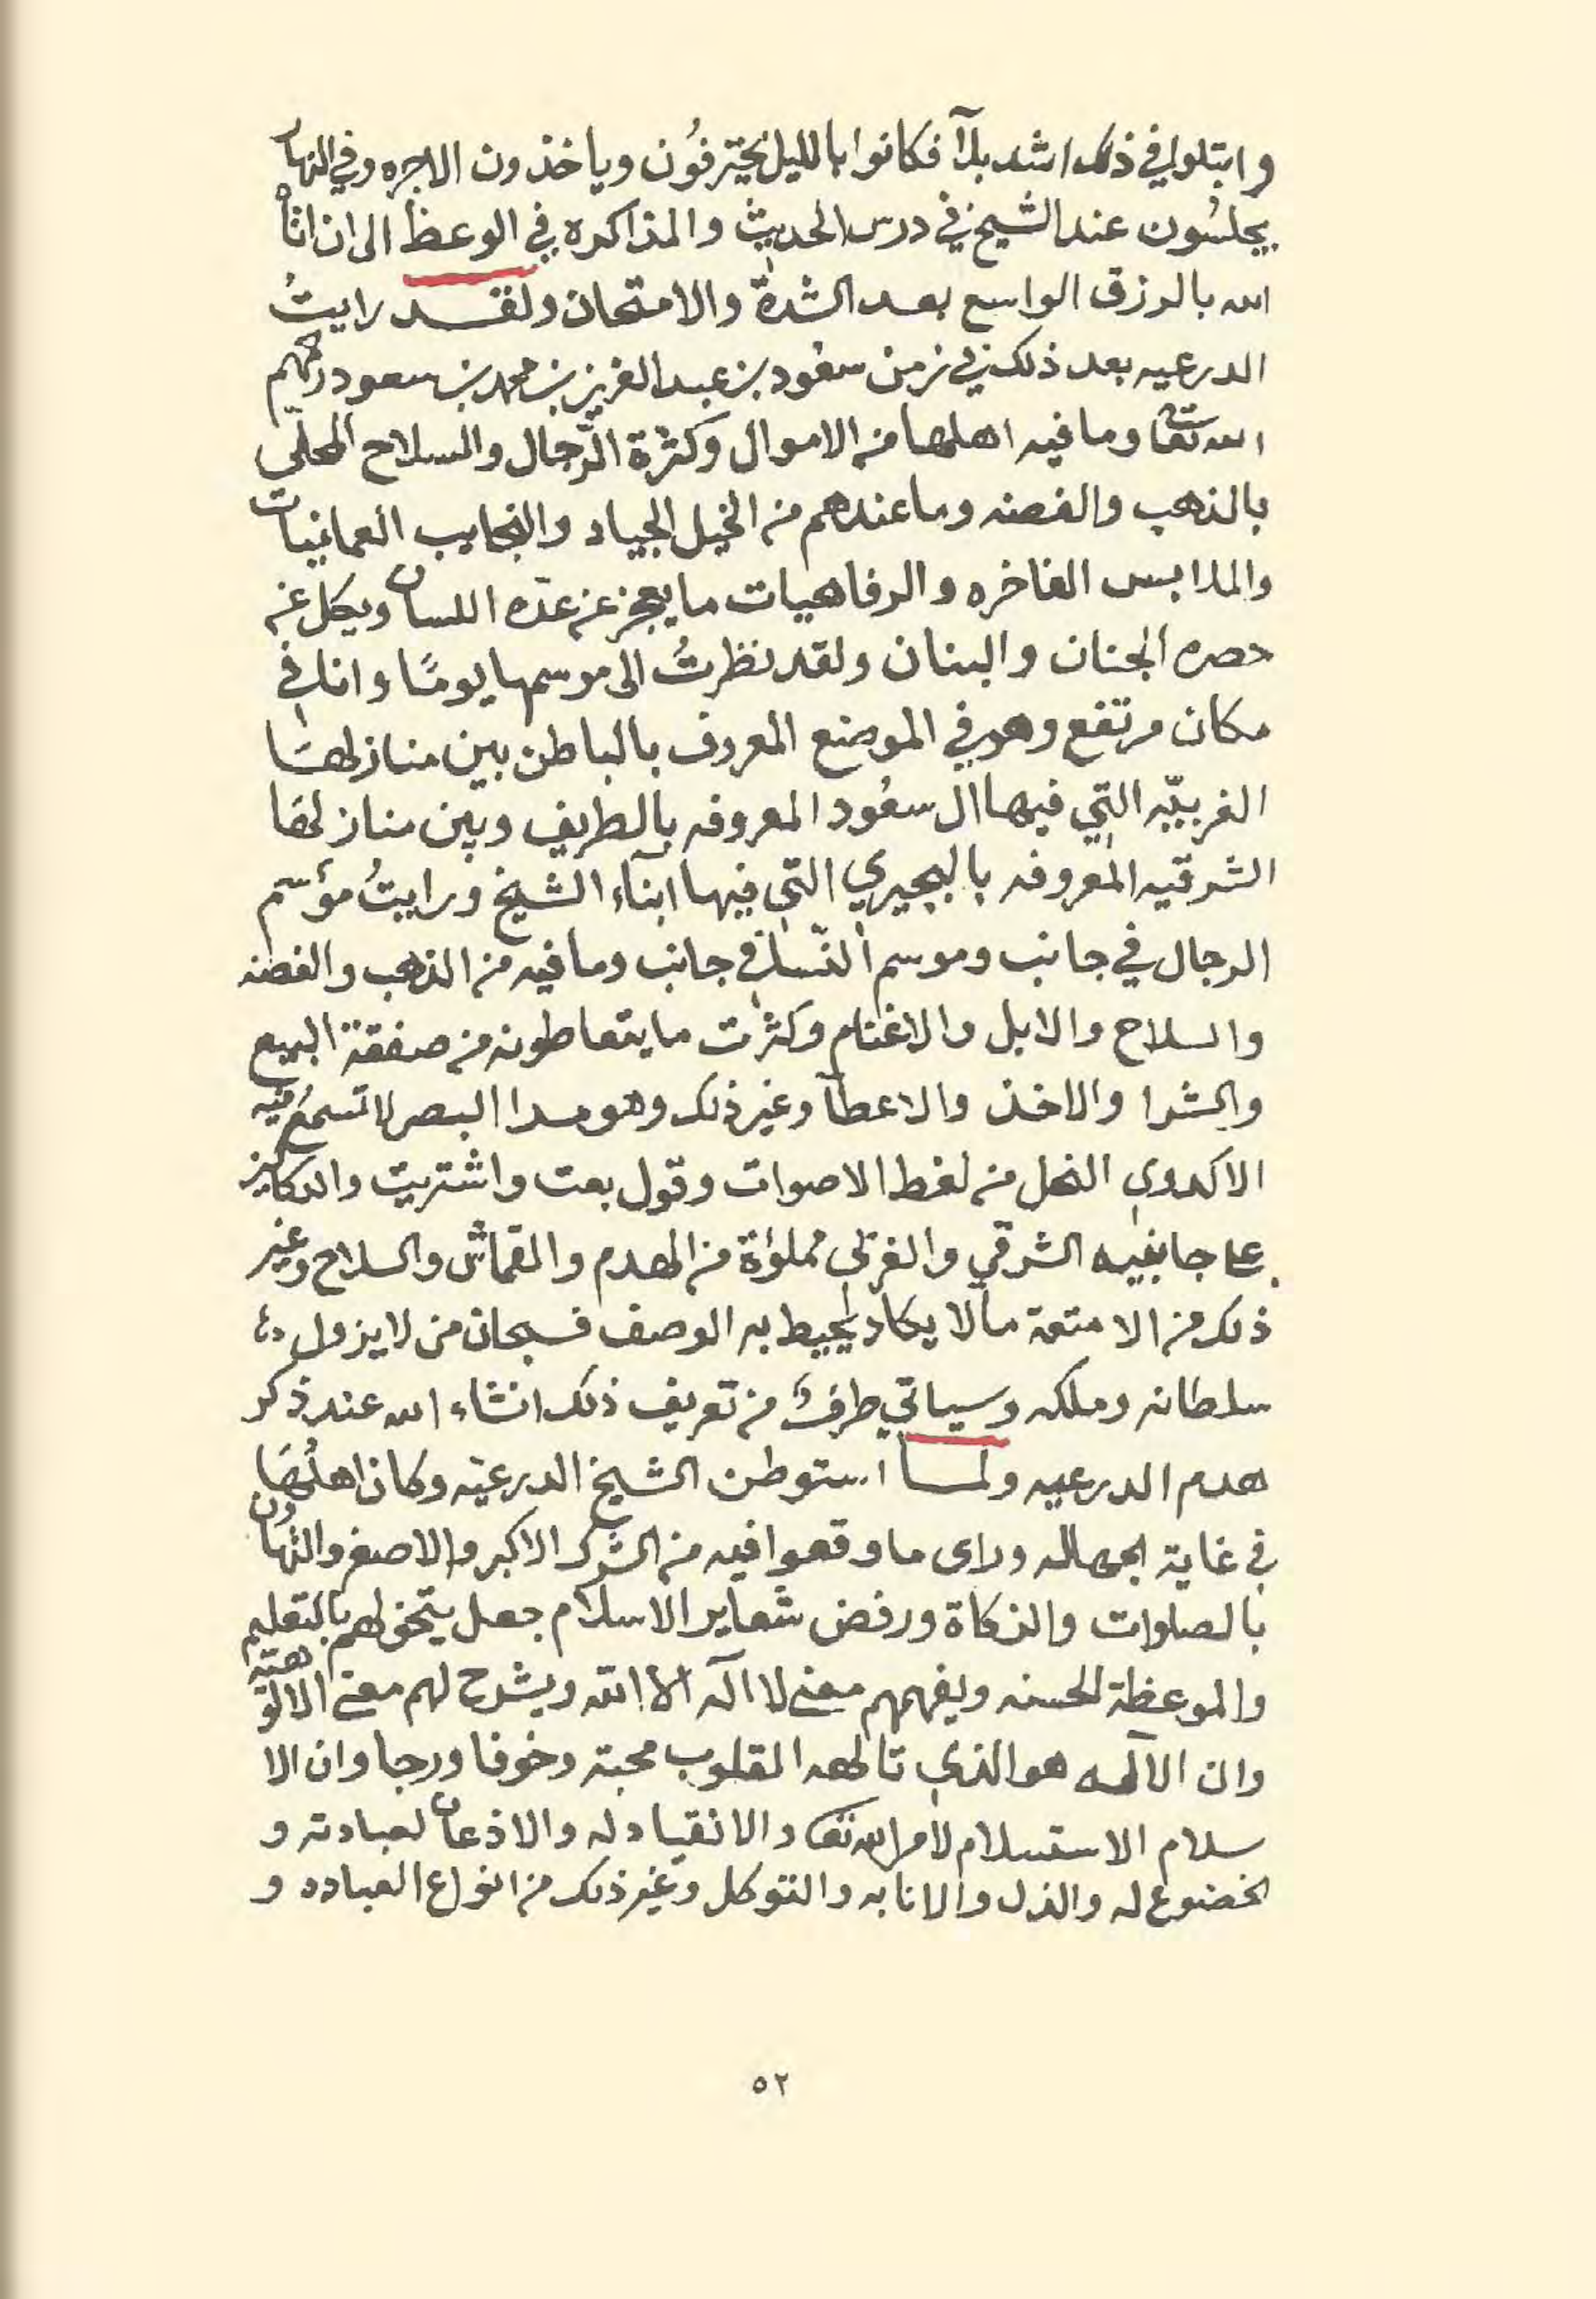 وابتلوا في ذلك اشد بلآ فكانوا بالليل يحترفُون وياخذون الاجره وفي النهار
يجلسُون عند الشيخ في درس الحديث والمذاكره في الوعظ الى ان اتاهم
الله بالرزق الواسع بعد الشدة والامتحان ولقد رايتُ
الدرعيه بعد ذلك في زمن سعُود بن عبد العزيز بن محمد بن سعود رحمهم
الله تعا وما فيه اهلها من الاموال وكثرة الرّجال والسلاح المحلّى
بالذهب والفضه وما عندهم من الخيل الجياد والنجايب العمانيات
والملابس الفاخره والرفاهيات ما يعجز عن عدّه اللسان ويكل عن
حصره الجنان والبنان ولقد نظرتُ الى موسمها يومًا وانا في
مكان مرتفع وهو في الموضع المعروف بالباطن بين منازلها
الغربيّه التي فيها ال سعُود المعروفه بالطريف وبين منازلها
الشرقيه المعروفه بالبجيري التي فيها ابنآء الشيخ ورايتُ موسم
الرجال في جانب وموسم النّسا في جانب وما فيه من الذهب والفضه
والسلاح والابل والاغنام وكثرت ما يتعاطونه من صفقة البيع
والشرا والاخذ والاعطآ وغير ذلك وهو مدا البصر لا تسمع فيه
الا كدوي النحل من لغط الاصوات وقول بعت واشتريت والدكاكين
على جانبيه الشرقي والغربي مملوٰة من الهدم والقماش والسلاح وغير
ذلك من الامتعة مالا يكاد يحيط به الوصف فسبحان من لا يزول
سلطانه وملكه وسياتي طرفٌ من تعريف ذلك انشاء الله عند ذكر
هدم الدرعيه ولما استوطن الشيخ الدرعيّه وكان اهلُهَا
في غاية الجهاله وراى ما وقعوا فيه من الشرك الاكبر والاصغر والتهاون
بالصلوات والزكاة ورفض شعاير الاسلام جعل يتخولهم بالتعليم
والموعظة الحسنه ويفهمهم معنى لا اله الا الله ويشرح لهم معنى الالوهيّه
وان الآله هو الذي تالهه القلوب محبة وخوفا ورجا وان الا
سلام الاستسلام لامر الله تعا والانقياد له والاذعان لعبادته و
الخضوع له والذل والانابه والتوكل وغير ذلك من انواع العباده و
٥٢